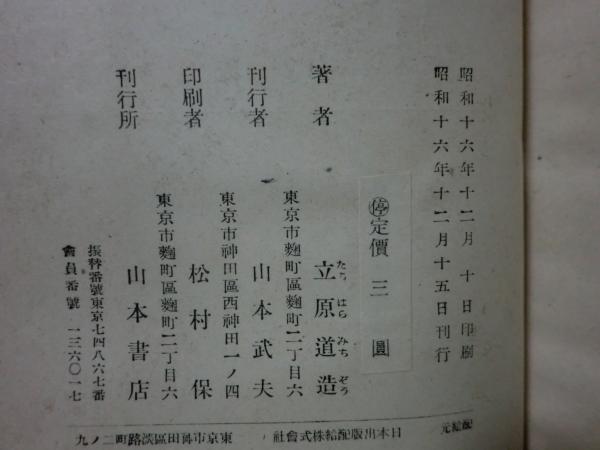 昭和十六年十二月 十日印刷
昭和十六年十二月十五日刊行
㊡定價 三 圓
著者 立原道造
たち はら みち ぞう
東京市麴町區麴町二丁目六
刊行者 山本武夫
東京市神田區西神田一ノ四
印刷者 松村保
東京市麴町區麴町二丁目六
刊行所 山本書店
振替番號東京七四八六七番
會員番號 一三六〇一七
配給元 日本出版配給株式會社 東京市神田區淡路町二ノ九